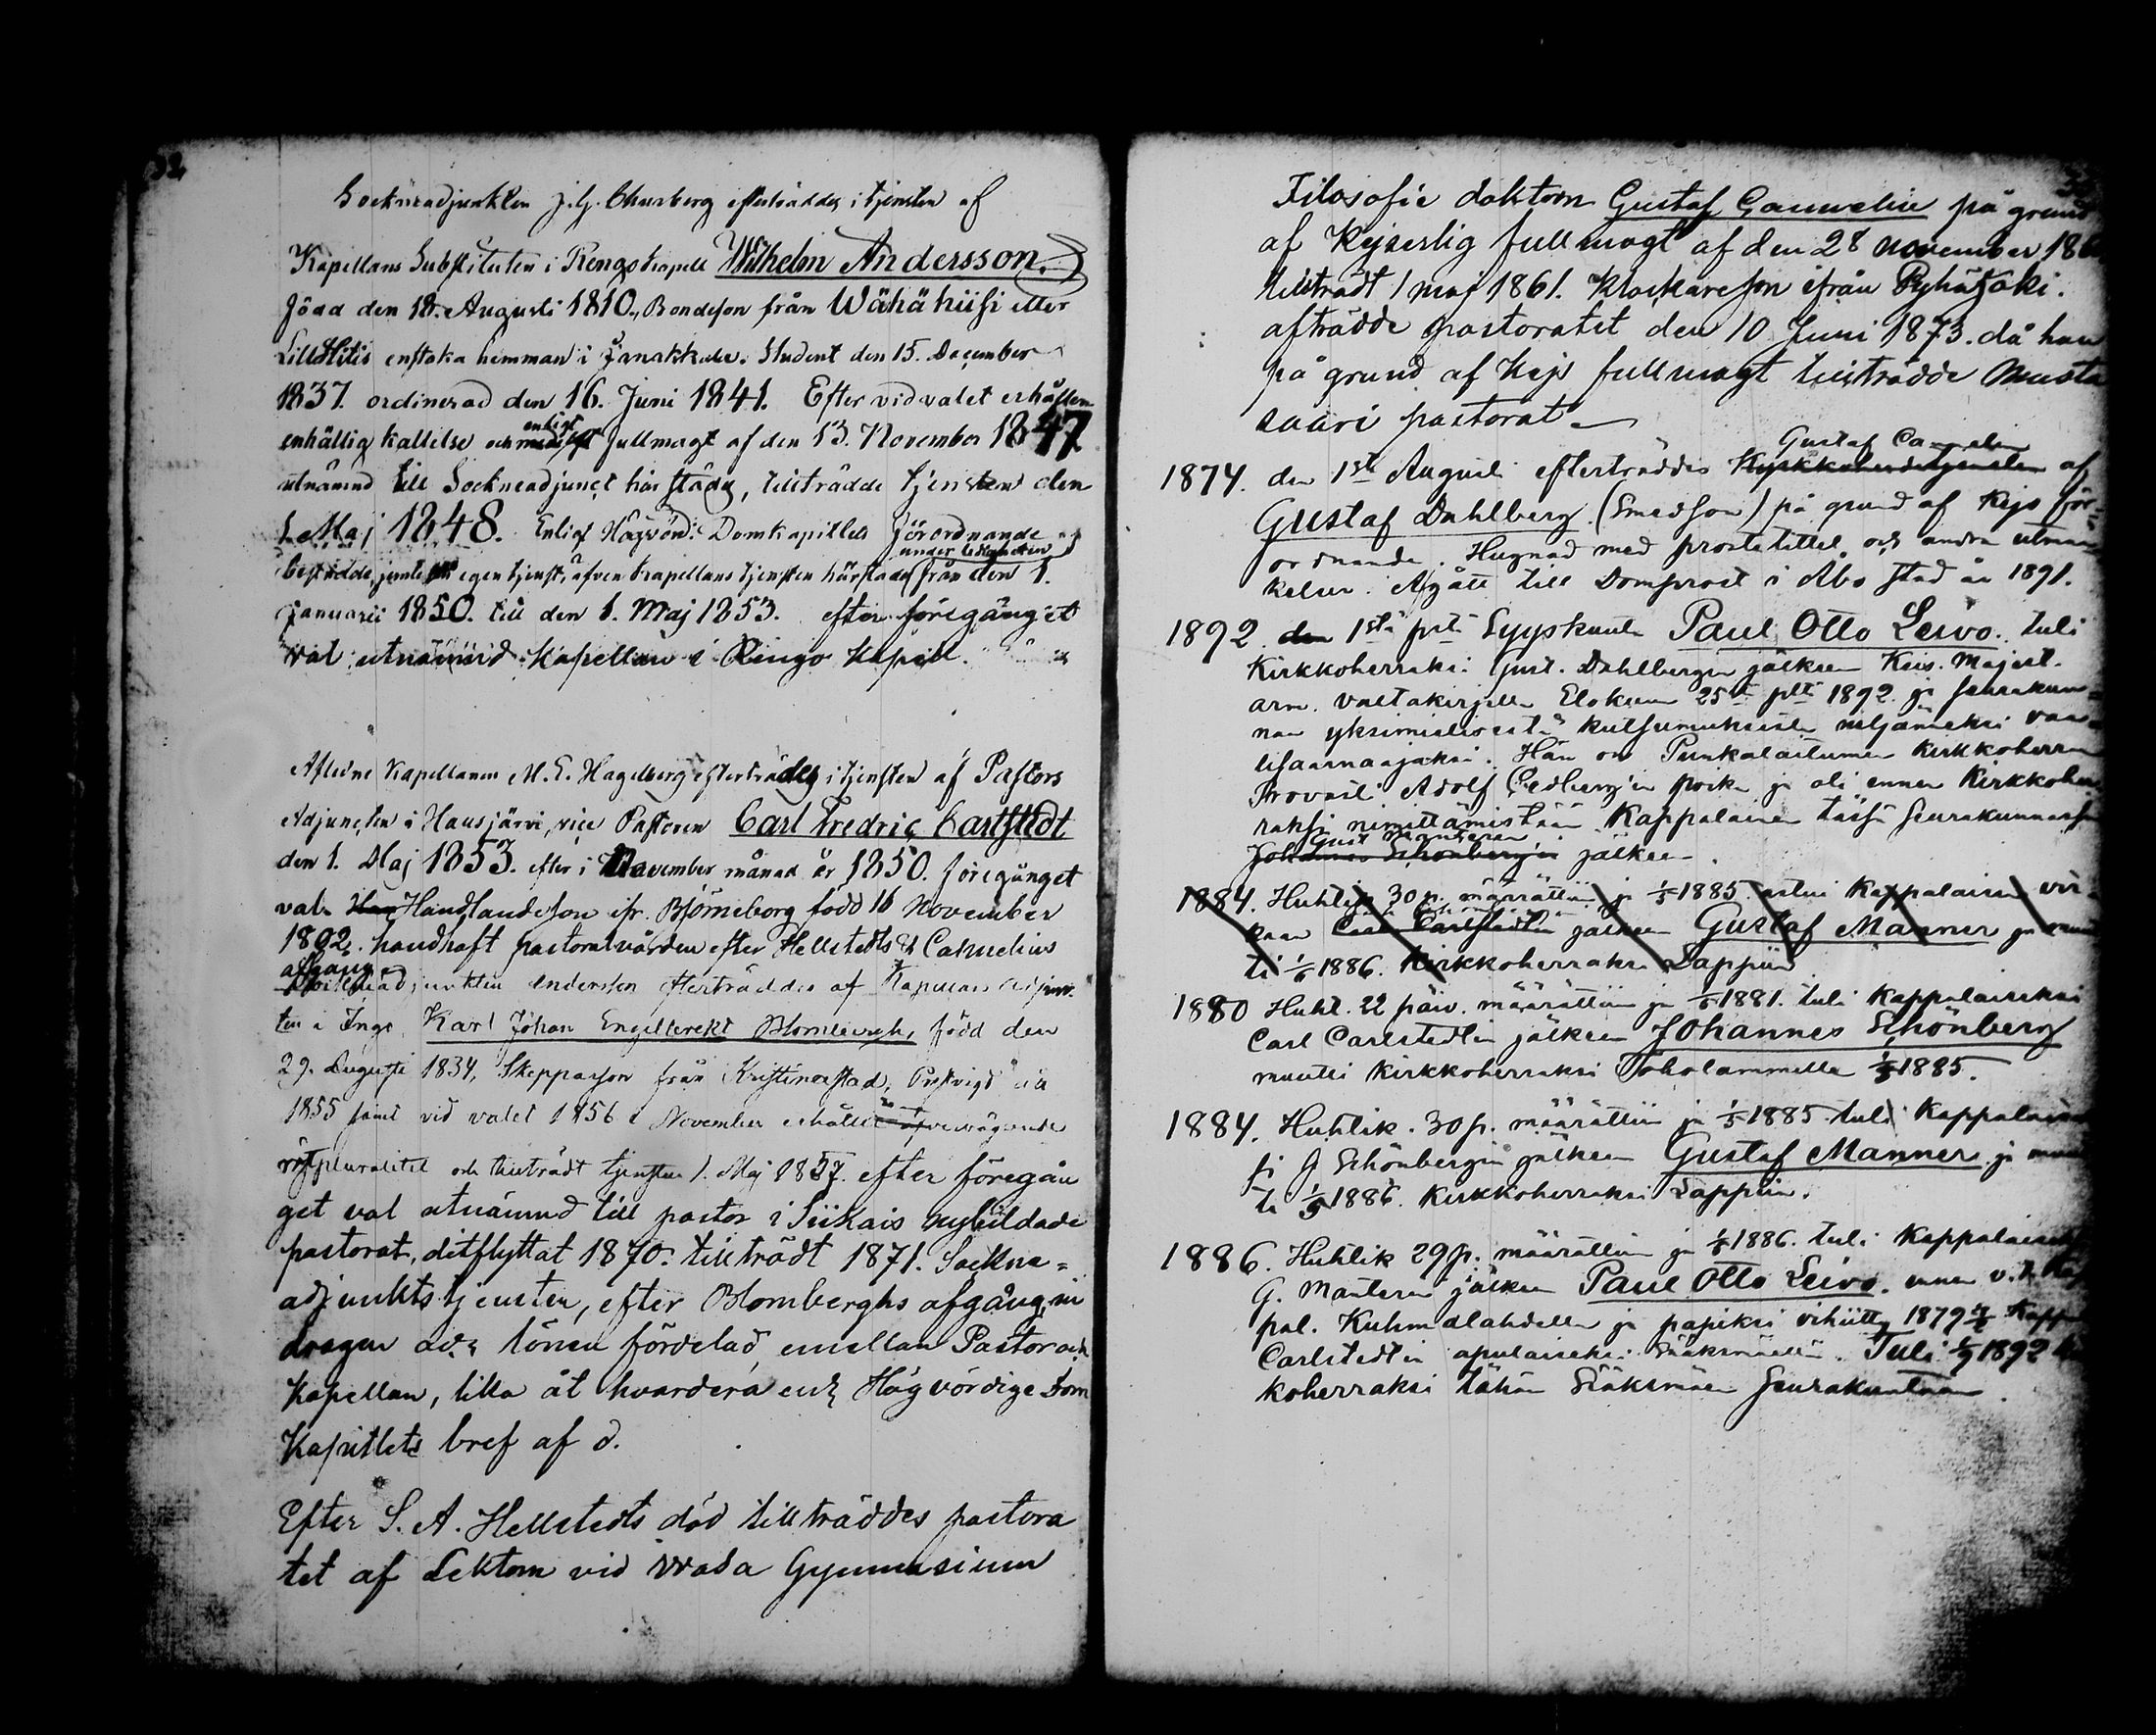 32
Sockneadjunkten J. G. Churberg efterträddes i tjensten af
Kapellans Substituten i Rengo kapell Wilhelm Andersson.
född den 18. Augusti 1810., Bondeson från Wähähiisi eller
LillHitis enstaka hemman i Janakkala. Student den 15. December
1837. ordinerad den 16. Juni 1841. Efter vid valet erhållen
enhällig kallelse och enligt fullmagt af den 13. November 1847
utnämnd till Sockneadjunct här städes, tillträdde tjensten den
1. Maj 1848. Enligt Högvörd: Domkapitlets förordnande
under ledigheten
bestridde, jemte egen tjenst, äfven kapellans tjensten härstädes från den 1.
Januarii 1850. till den 1. Maj 1853. efter föregånget
val utnämnd Kapellan i Rengo Kapell.
Aflidne Kapellanen M. E. Hagelberg efterträddes i tjensten af Pastors
Adjuncten i Hausjärvi, vice Pastoren Carl Fredric Carlstedt
den 1. Maj 1853. efter i November månad år 1850. föregånget
val. Handlandeson ifr. Björneborg född 16 November
1802. handhaft pastoralvården efter Hellstedts & Cannelius
afgång
adjunkten Andersson efterträddes af Kapellans adjunk-
ten i Ingo Karl Johan Engelbrekt Blombergh, född den
29. Augusti 1834, Skeppareson från Kristinestad, Prestvigd
1855 samt vid valet 1856 i November erhållit öfvervägande
röstpluralitet och tillträdt tjensten 1. Maj 1857. efter föregån
get val utnämnd till pastor i Siikais nybildade
pastorat, ditflyttat 1870. tillträdt 1871. Sockne=
adjunktstjensten, efter Blomberghs afgång, in
dragen och lönen fördelad emellan Pastor och
Kapellan, lika åt hvardera enl. Högvördige Dom
Kapitlets bref af d.
Efter S. A. Hellstedts död tillträddes pastora
tet af Lektorn vid Wasa Gymnasium
Filosofie doktorn Gustaf Cannelin på grund
af Kejserlig fullmagt af den 28 november 186
tillträdt 1 maj 1861. Klockareson ifrån Pyhäjoki.
afträdde pastoratet den 10 Juni 1873. då han
på grund af Kejs fullmagt tillträdde Musta
saari pastorat
Gustaf Cannelin
1874. den 1sta Augusti efterträddes Kyrkkoherdetjensten af
Gustaf Dahlberg (Smedson) på grund af Kejs för-
ordnande. Hugnad med prostetittel och andra utmär
kelser. Afgått till Domprost i Åbo stad år 1891.
1892 den 1stä p:tä Syyskuuta Paul Otto Leivo. tuli
Kirkkoherraksi Gust. Dahlbergin jälkeen Keis. Majest.
arm. valtakirjalla Elokuun 25tä p:tä 1892 ja seurakun=
nan yksimielisestä kutsumuksesta neljänneksi vaa
lisaarnaajaksi. Hän on Punkalaitumen Kirkkoherran
Provasti Adolf Cedberg'in poika ja oli ennen Kirkkoher
raksi nimittämistään Kappalainen tässä Seurakunnassa
Gust Mannerin
Johannes Schönberg'in jälkeen.
1884. Huhtik. 30 p. määrättiin ja 1/5 1885 astui Kappalaisen vir=
kaan Carl Carlstedtin jälkeen Gustaf Manner ja muut
ti 1/5 1886. Kirkkoherraksi Lappiin
1880 Huht. 22 päiv. määrättiin ja 1/5 1881. tuli Kappalaiseksi
Carl Carlstedtin jälkeen Johannes Schönberg
muutti Kirkkoherraksi Toholammille 1/5 1885.
1884. Huhtik. 30 p. määrättiin ja 1/5 1885 tuli Kappalaisek
si J Schönbergin jälkeen Gustaf Manner ja muut
ti 1/5 1886. Kirkkoherraksi Lappiin.
1886. Huhtik 29 p. määrättiin ja 1/5 1886. tuli Kappalaiseksi
G. Mannerin jälkeen Paul Otto Leivo. ennen v.t. Kap
pal. Kuhmalahdella ja papiksi vihitty 1879 Kapp
Carlstedtin apulaiseksi Sääksmäellä. Tuli 1/9 1892
koherraksi tähän Sääksmäen Seurakuntaan.